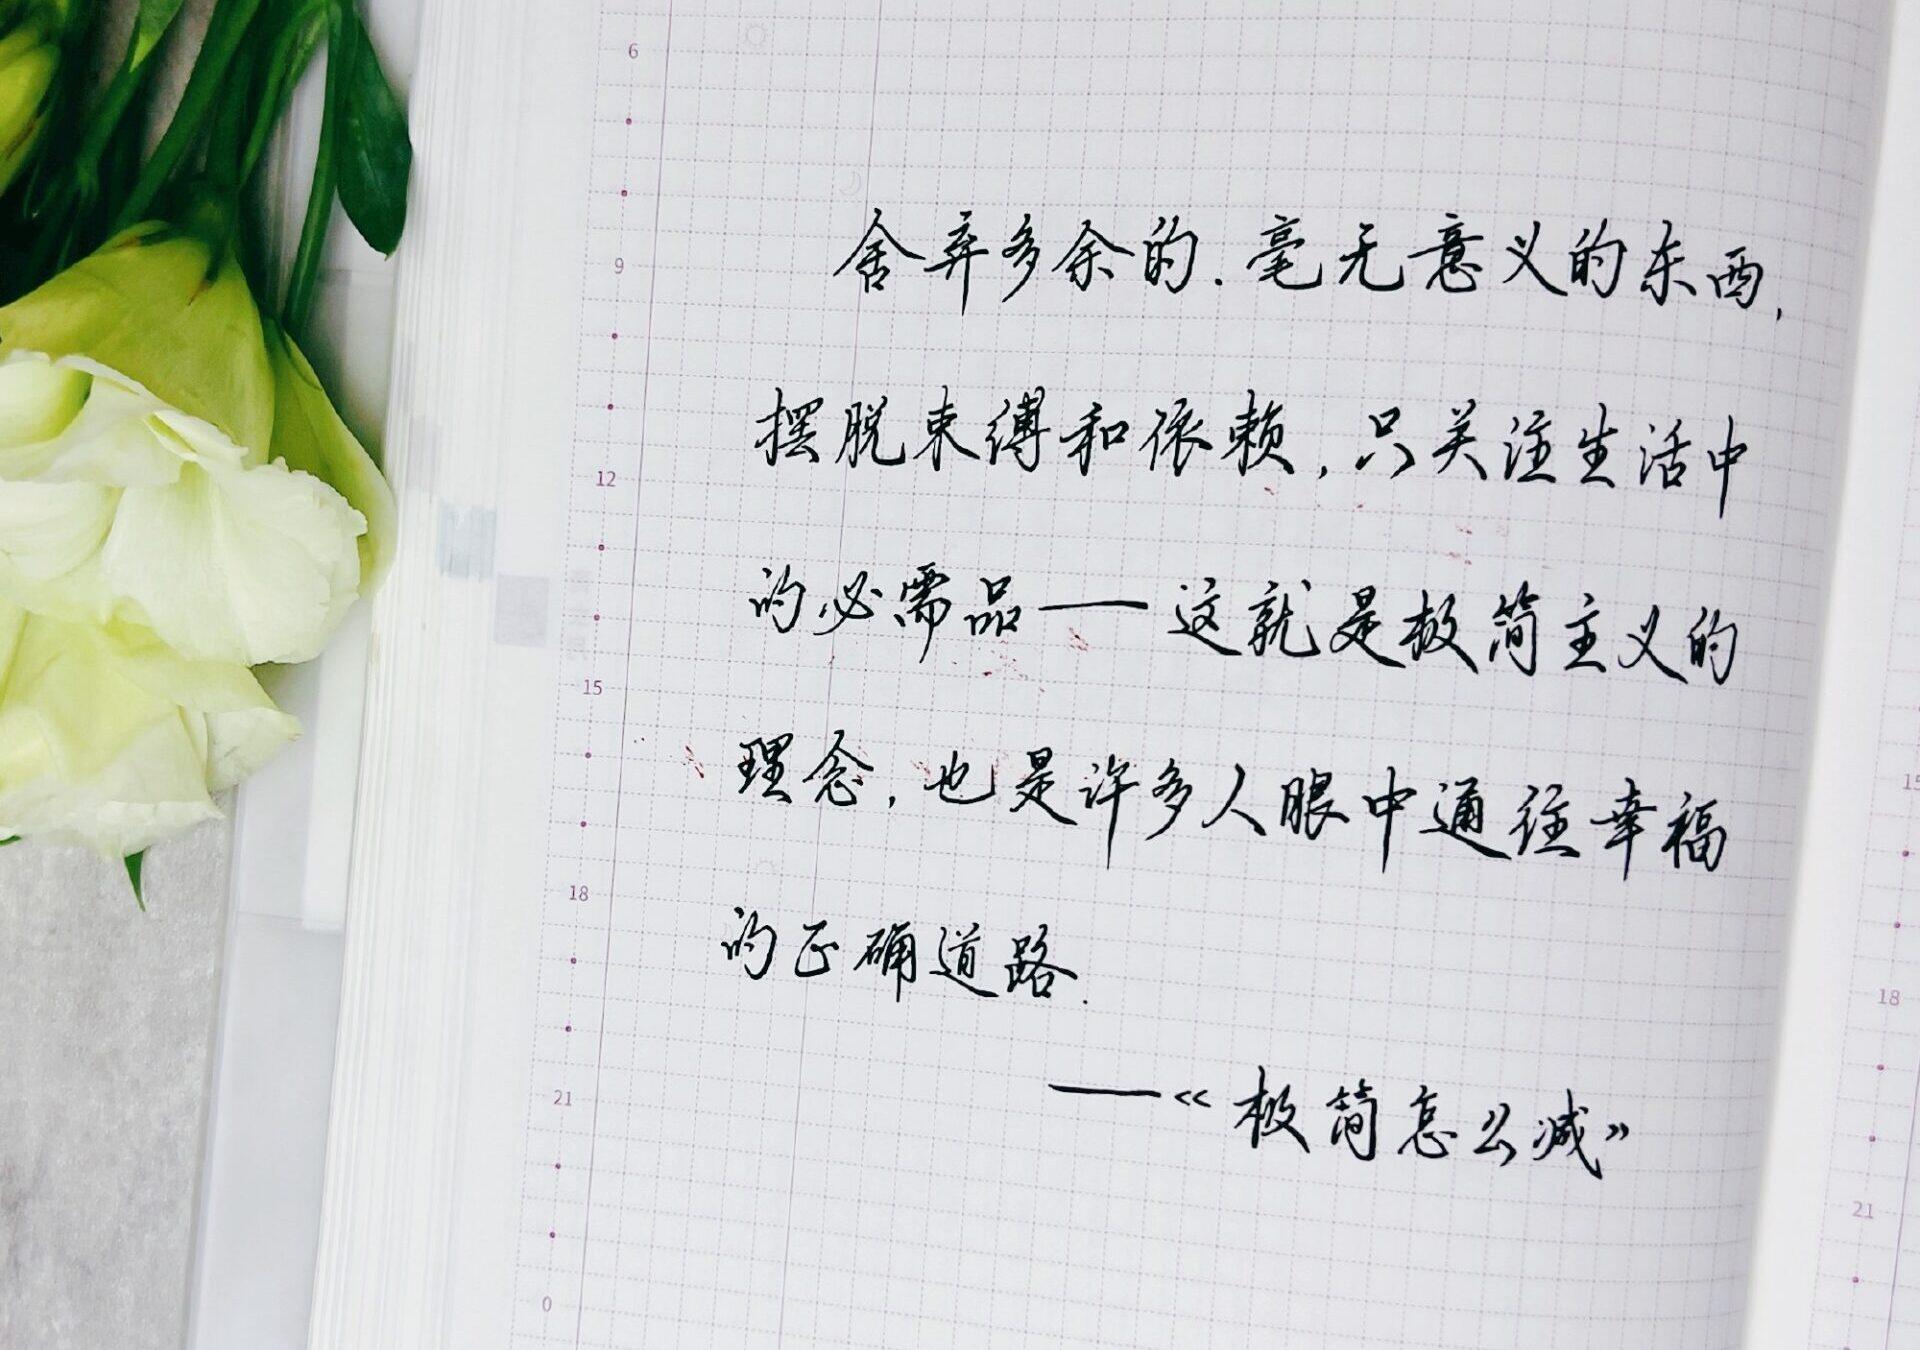 6
舍弃多余的.毫无意义的东西,
9
摆脱束缚和依赖,只关注生活中
12
的必需品——这就是极简主义的
15
理念,也是许多人眼中通往幸福
15
18
的正确道路.
18
21
——《极简怎么减》
21
0